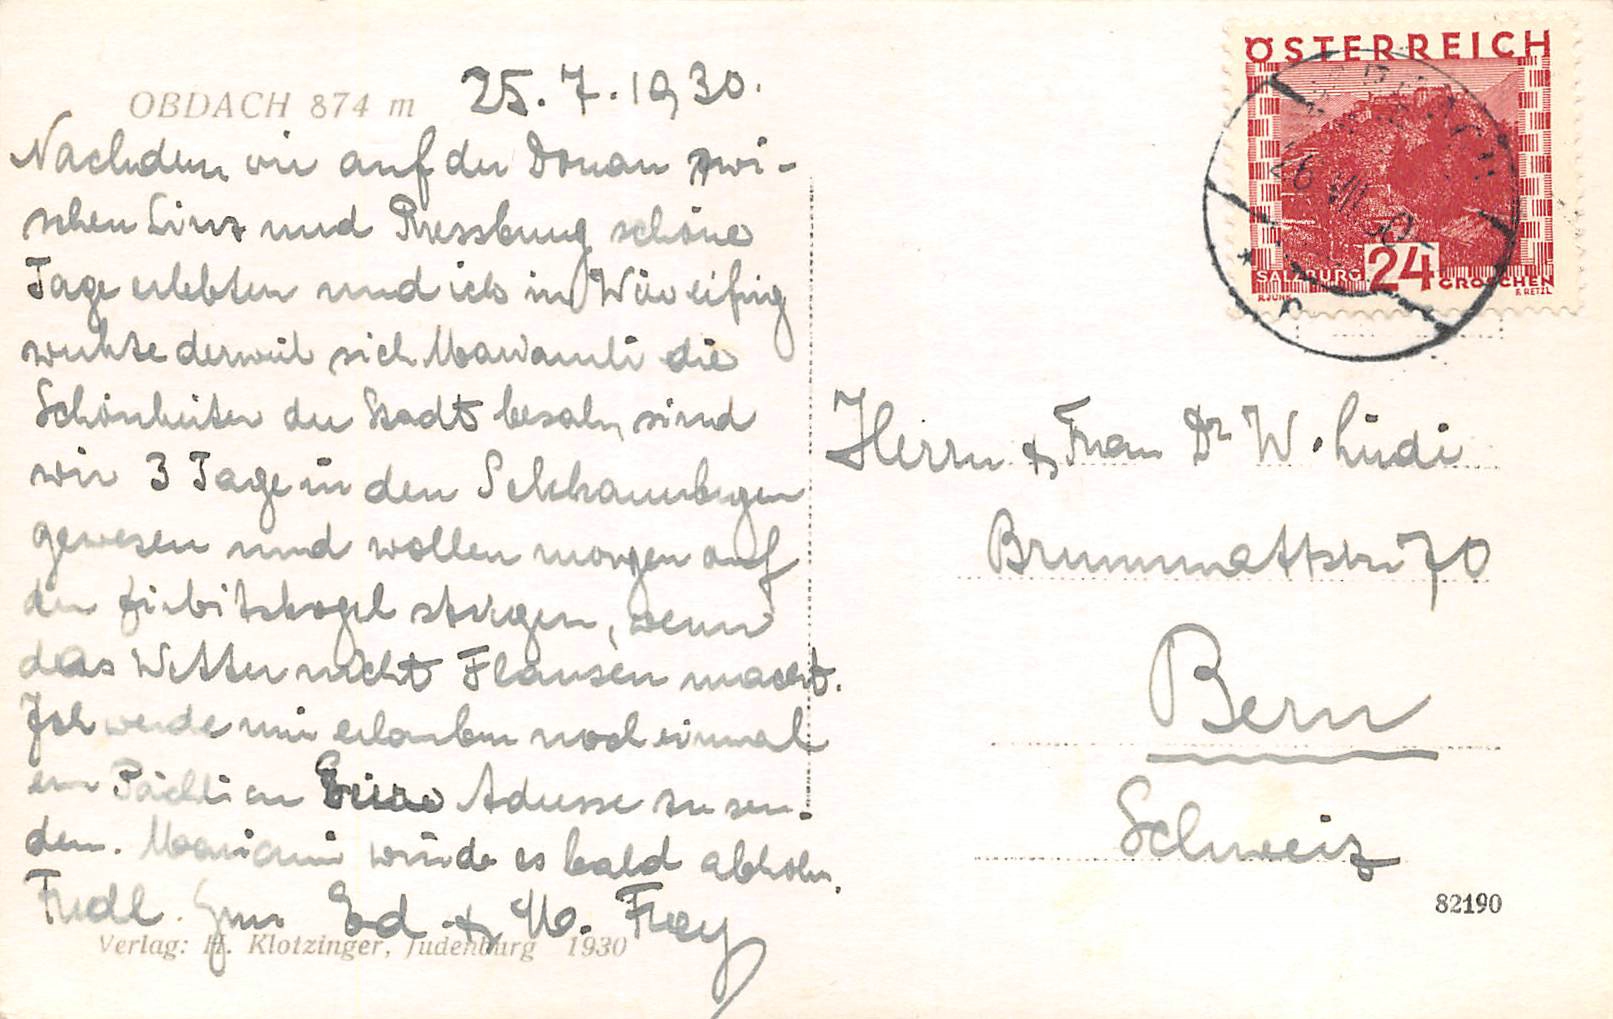 OBDACH 874 m
25. 7. 1930.
Nachdem wir auf der Donau zwi-
schen Linz und Pressburg schöne
Tage erlebten und ich in Wien eifrig
wirkte derweil sich Mariandli die
Schönheiten der Stadt besah, sind
wir 3 Tage in den Seckauerbergen
gewesen und wollen morgen auf
den Zirbitzkogel steigen, wenn
das Wetter nicht Flausen macht.
Ich werde mir erlauben noch einmal
ein Päckli an Eure Adresse zu sen-
den. Mariandi würde es bald abholen.
Friedl. Ed & M. Frey
Verlag: H. Klotzinger, Judenburg 1930
ÖSTERREICH
SALZBURG 24 GROSCHEN
R.JUNK
26 VII 30
Herrn & Frau Dr W. Lüdi
Brunnmattstr. 70
Bern
Schweiz
82190